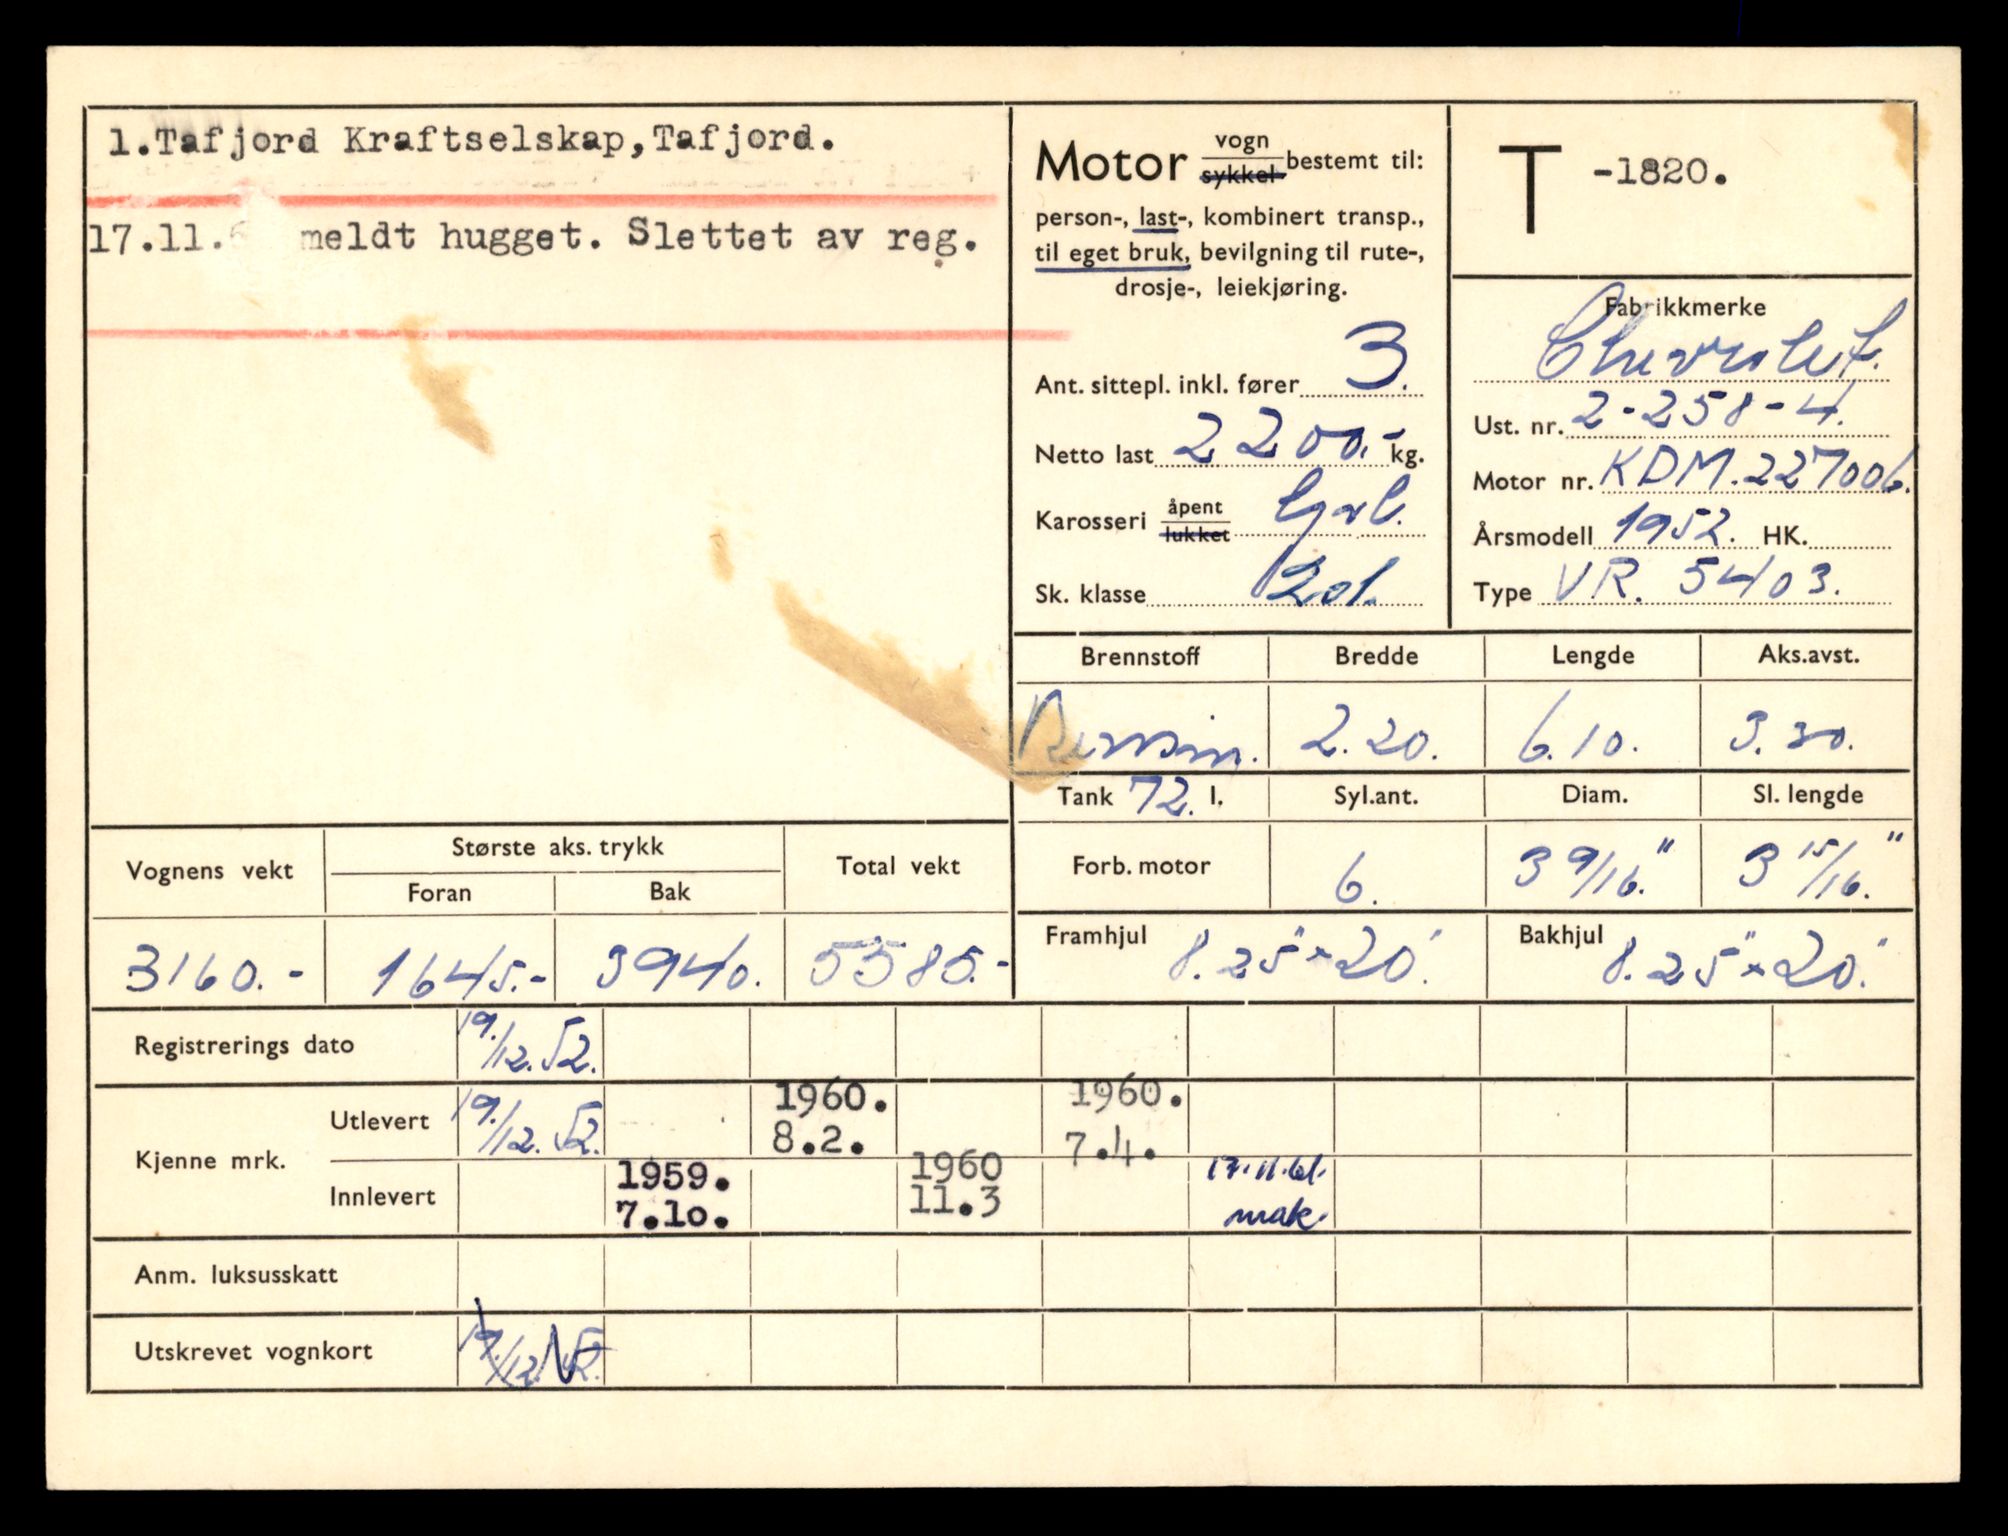 1.Tafjord Kraftselskap,Tafjord.
17.11.6 meldt hugget. Slettet av reg.
Motor vogn sykkel bestemt til:
person-, last-, kombinert transp.,
til eget bruk, bevilgning til rute-,
drosje-, leiekjøring.
Ant. sittepl. inkl. fører 3.
Netto last 2200.- kg.
Karosseri åpent lukket
Sk. klasse 2ol.
T -1820.
Fabrikkmerke
Chevrolet.
Ust. nr. 2-258-4.
Motor nr. KDM.227006.
Årsmodell 1952. HK.
Type VR. 5403.
Brennstoff Bredde Lengde Aks.avst.
Bensin. 2.20. 6.10. 3.30.
Tank 72. l. Syl.ant. Diam. Sl. lengde
Forb. motor 6. 3 9/16." 3 15/16."
Framhjul 8.25"x20" Bakhjul 8.25"x20"
Vognens vekt Største aks. trykk Total vekt
Foran Bak
3160.- 1645.- 3940. 5585.-
Registrerings dato 19./12.52.
Kjenne mrk.
Utlevert 19./12.52. 1960. 8.2. 1960. 7.4.
Innlevert 1959. 7.1o. 1960 11.3 17.11.61. mak.
Anm. luksusskatt
Utskrevet vognkort 19./12.52.